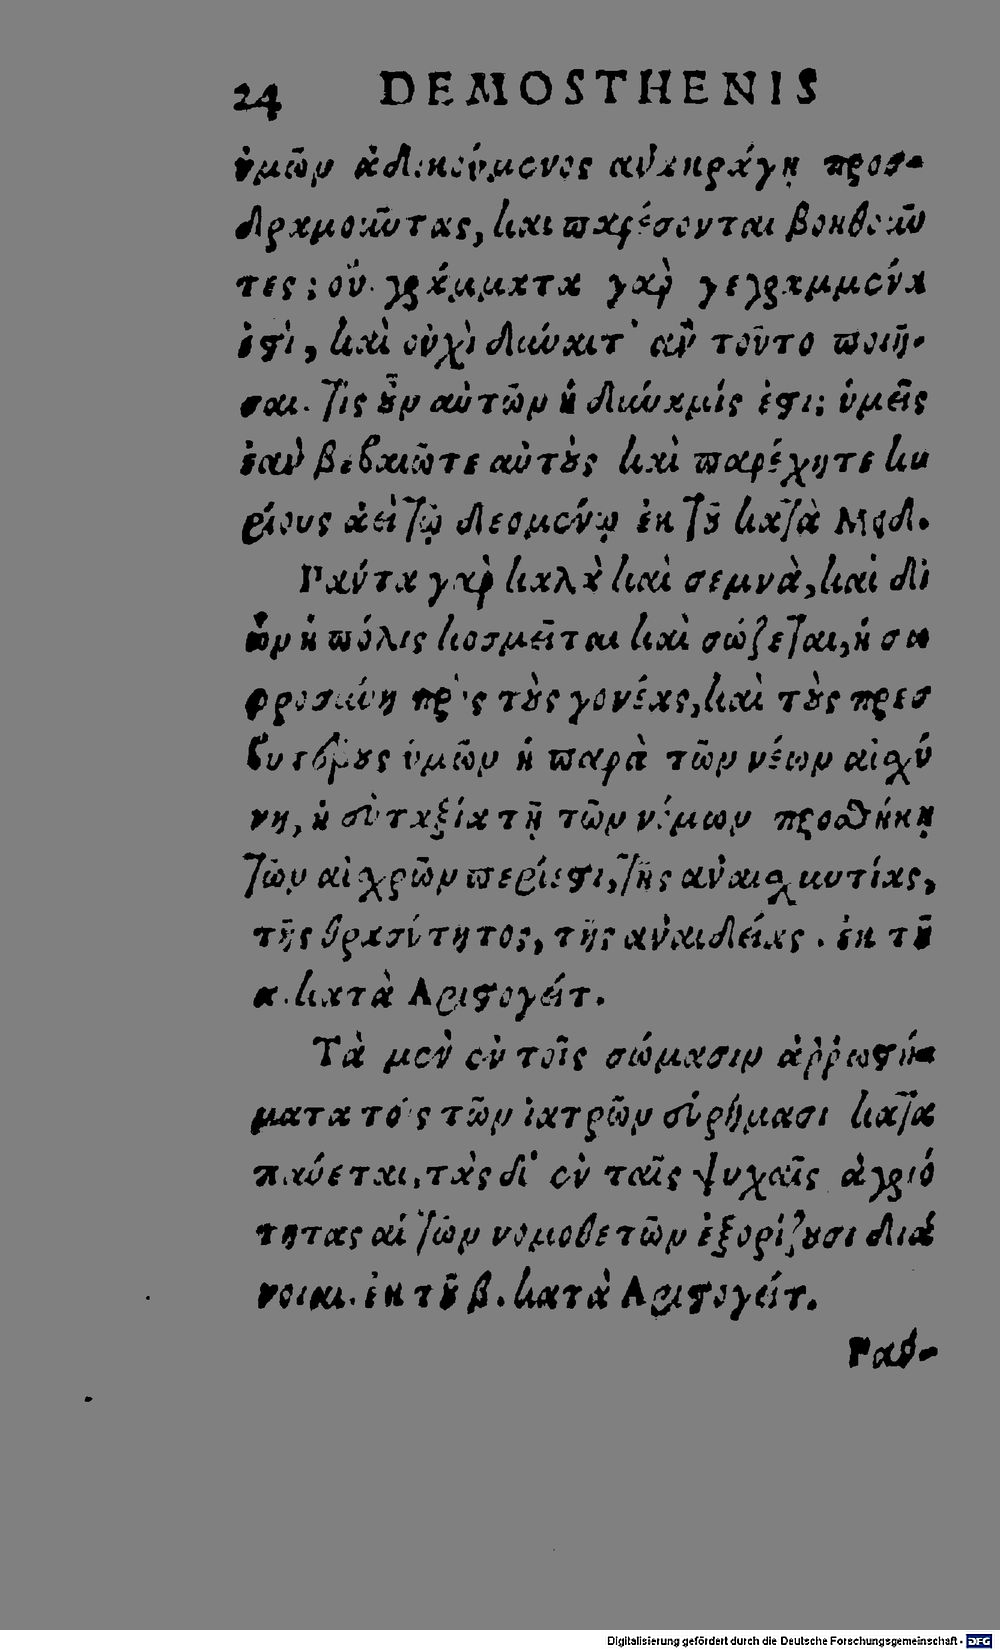 24 DEMOSTHENIS
ὑμῶν ἀδικούμενος ἀνακράγῃ προσ-
δραμοῦντας, καὶ παρέσονται βοηθοῦν
τες; οὔ. γράμματα γὰρ γεγραμμένα
ἐστὶ, καὶ οὐχὶ δύναιτ' ἂν τοῦτο ποιῆ-
σαι. τίς οὖν αὐτῶν ἡ δύναμίς ἐστι; ὑμεῖς
ἐὰν βεβαιῶτε αὐτοὺς καὶ παρέχητε κυ
ρίους ἀεὶ τῷ δεομένῳ ἐκ τοῦ κατὰ Μειδ.
Πάντα γὰρ καλὰ καὶ σεμνὰ, καὶ δι
ὧν ἡ πόλις κοσμεῖται καὶ σώζεται, ἡ σω
φροσύνη πρὸς τοὺς γονέας, καὶ τοὺς πρεσ
βυτέρους ὑμῶν ἡ παρὰ τῶν νέων αἰσχύ
νη, ἡ εὐταξία τῇ τῶν νόμων προσθήκῃ
τῶν αἰσχρῶν περίεστι, τῆς ἀναισχυντίας,
τῆς θρασύτητος, τῆς ἀναιδείας. ἐκ τοῦ
α. κατὰ Ἀριστογείτ.
Τὰ μὲν ἐν τοῖς σώμασιν ἀῤῥωστή-
ματα τοῖς τῶν ἰατρῶν εὑρήμασι κατα
παύεται, τὰς δ' ἐν ταῖς ψυχαῖς ἀγριό
τητας αἱ τῶν νομοθετῶν ἐξορίζουσι διά
νοιαι. ἐκ τοῦ β. κατὰ Ἀριστογείτ.
Παύ-
Digitalisierung gefördert durch die Deutsche Forschungsgemeinschaft - DFG